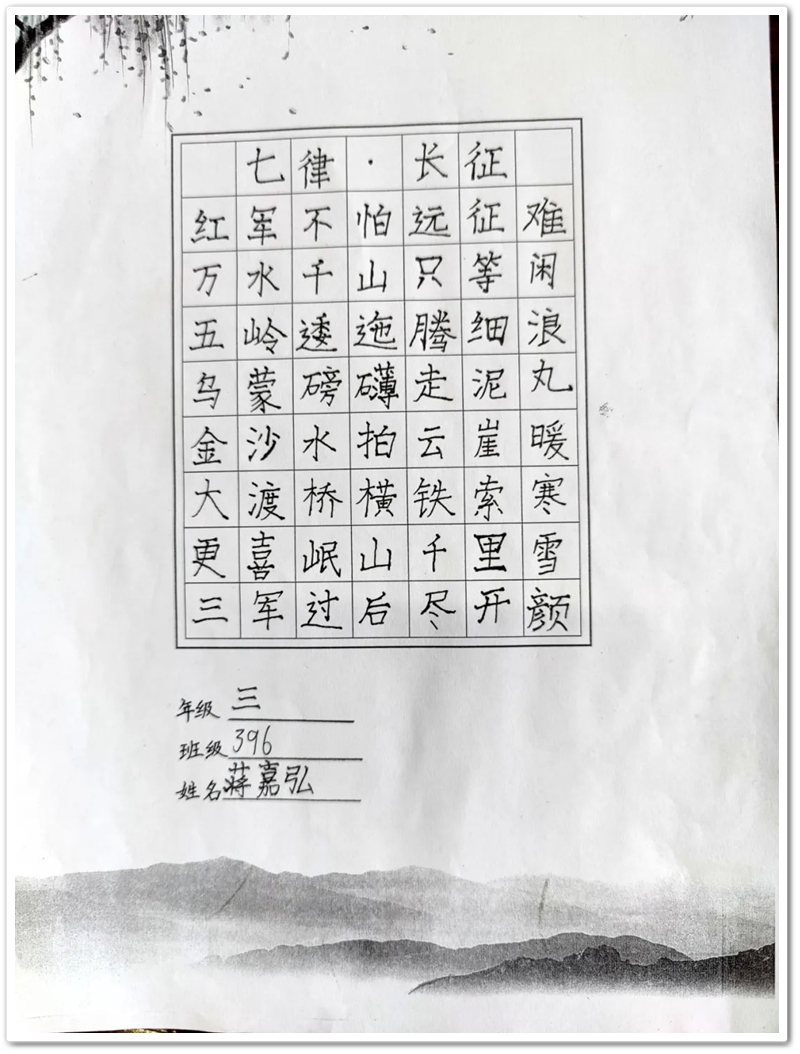 七律·长征
红军不怕远征难
万水千山只等闲
五岭逶迤腾细浪
乌蒙磅礴走泥丸
金沙水拍云崖暖
大渡桥横铁索寒
更喜岷山千里雪
三军过后尽开颜
年级 三
班级 396
姓名 蒋嘉弘